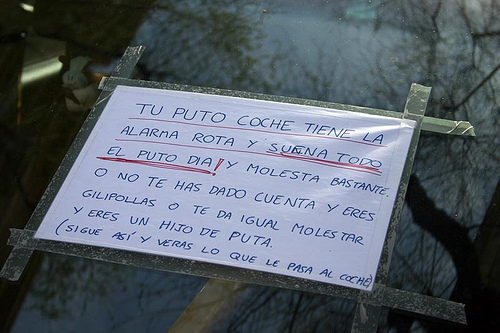 TU PUTO COCHE TIENE LA
ALARMA ROTA Y SUENA TODO
EL PUTO DIA! Y MOLESTA BASTANTE.
O NO TE HAS DADO CUENTA Y ERES
GILIPOLLAS O TE DA IGUAL MOLESTAR
Y ERES UN HIJO DE PUTA.
(SIGUE ASÍ Y VERAS LO QUE LE PASA AL COCHE)